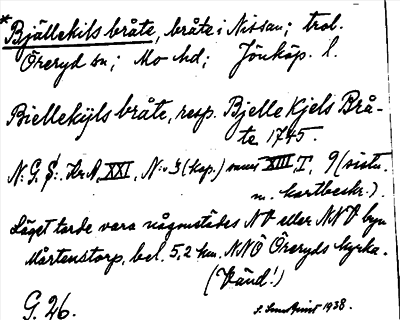 *Bjällekils bråte, bråte i Nissan; trol.
Öreryd sn; Mo hd; Jönköp. l.
Biellekijls bråte, resp. Bjelle Kjels Brå-
te 1745.
N:o 3 (kop.) XIII 9 (vistn.
m. kartbeskr.).
Läget torde vara någonstädes NV eller NNV byn
Mårtenstorp, bel. 5,2 km. NNO Öreryds kyrka.
(Vänd!)
G. 26. 1938.